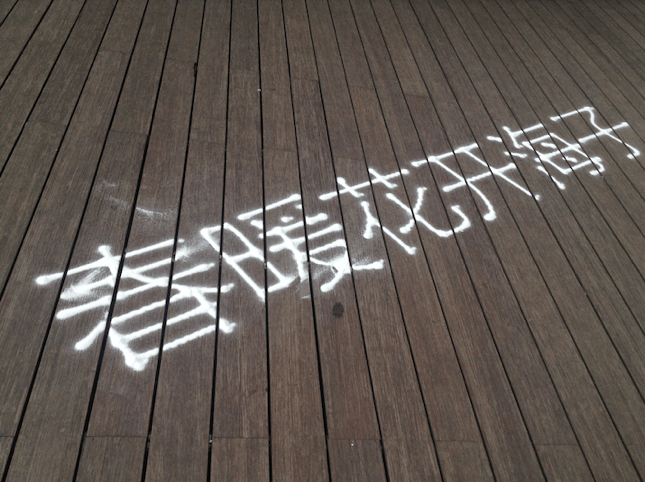 春暖花开海子